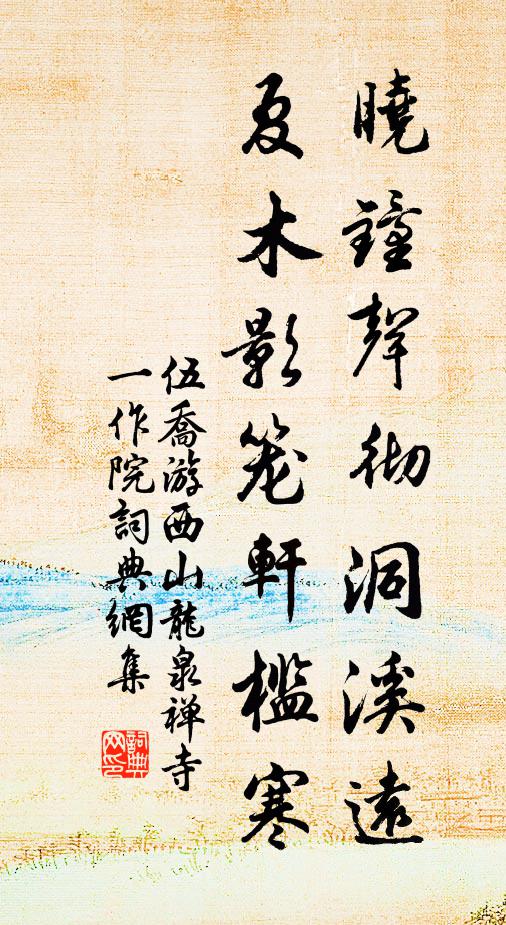 曉鐘聲彻洞溪遠
夏木影笼軒檻寒
伍喬游西山龍泉禅寺
一作院詞典網集
詞典網印